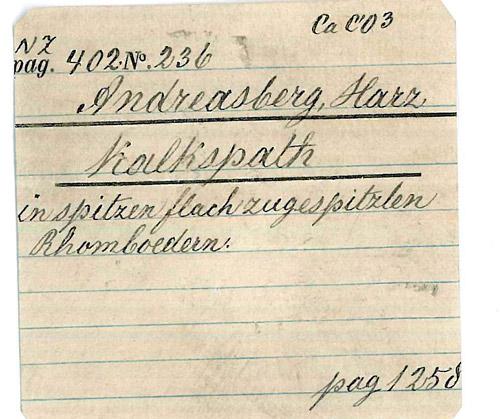 Ca CO3
NZ
pag. 402. No. 236
Andreasberg, Harz
Kalkspath
in spitzen flach zugespitzten
Rhomboedern.
pag 1258